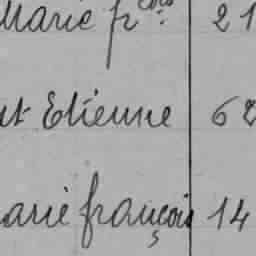 Marie frçois 21
Etienne 62
arie françois 14